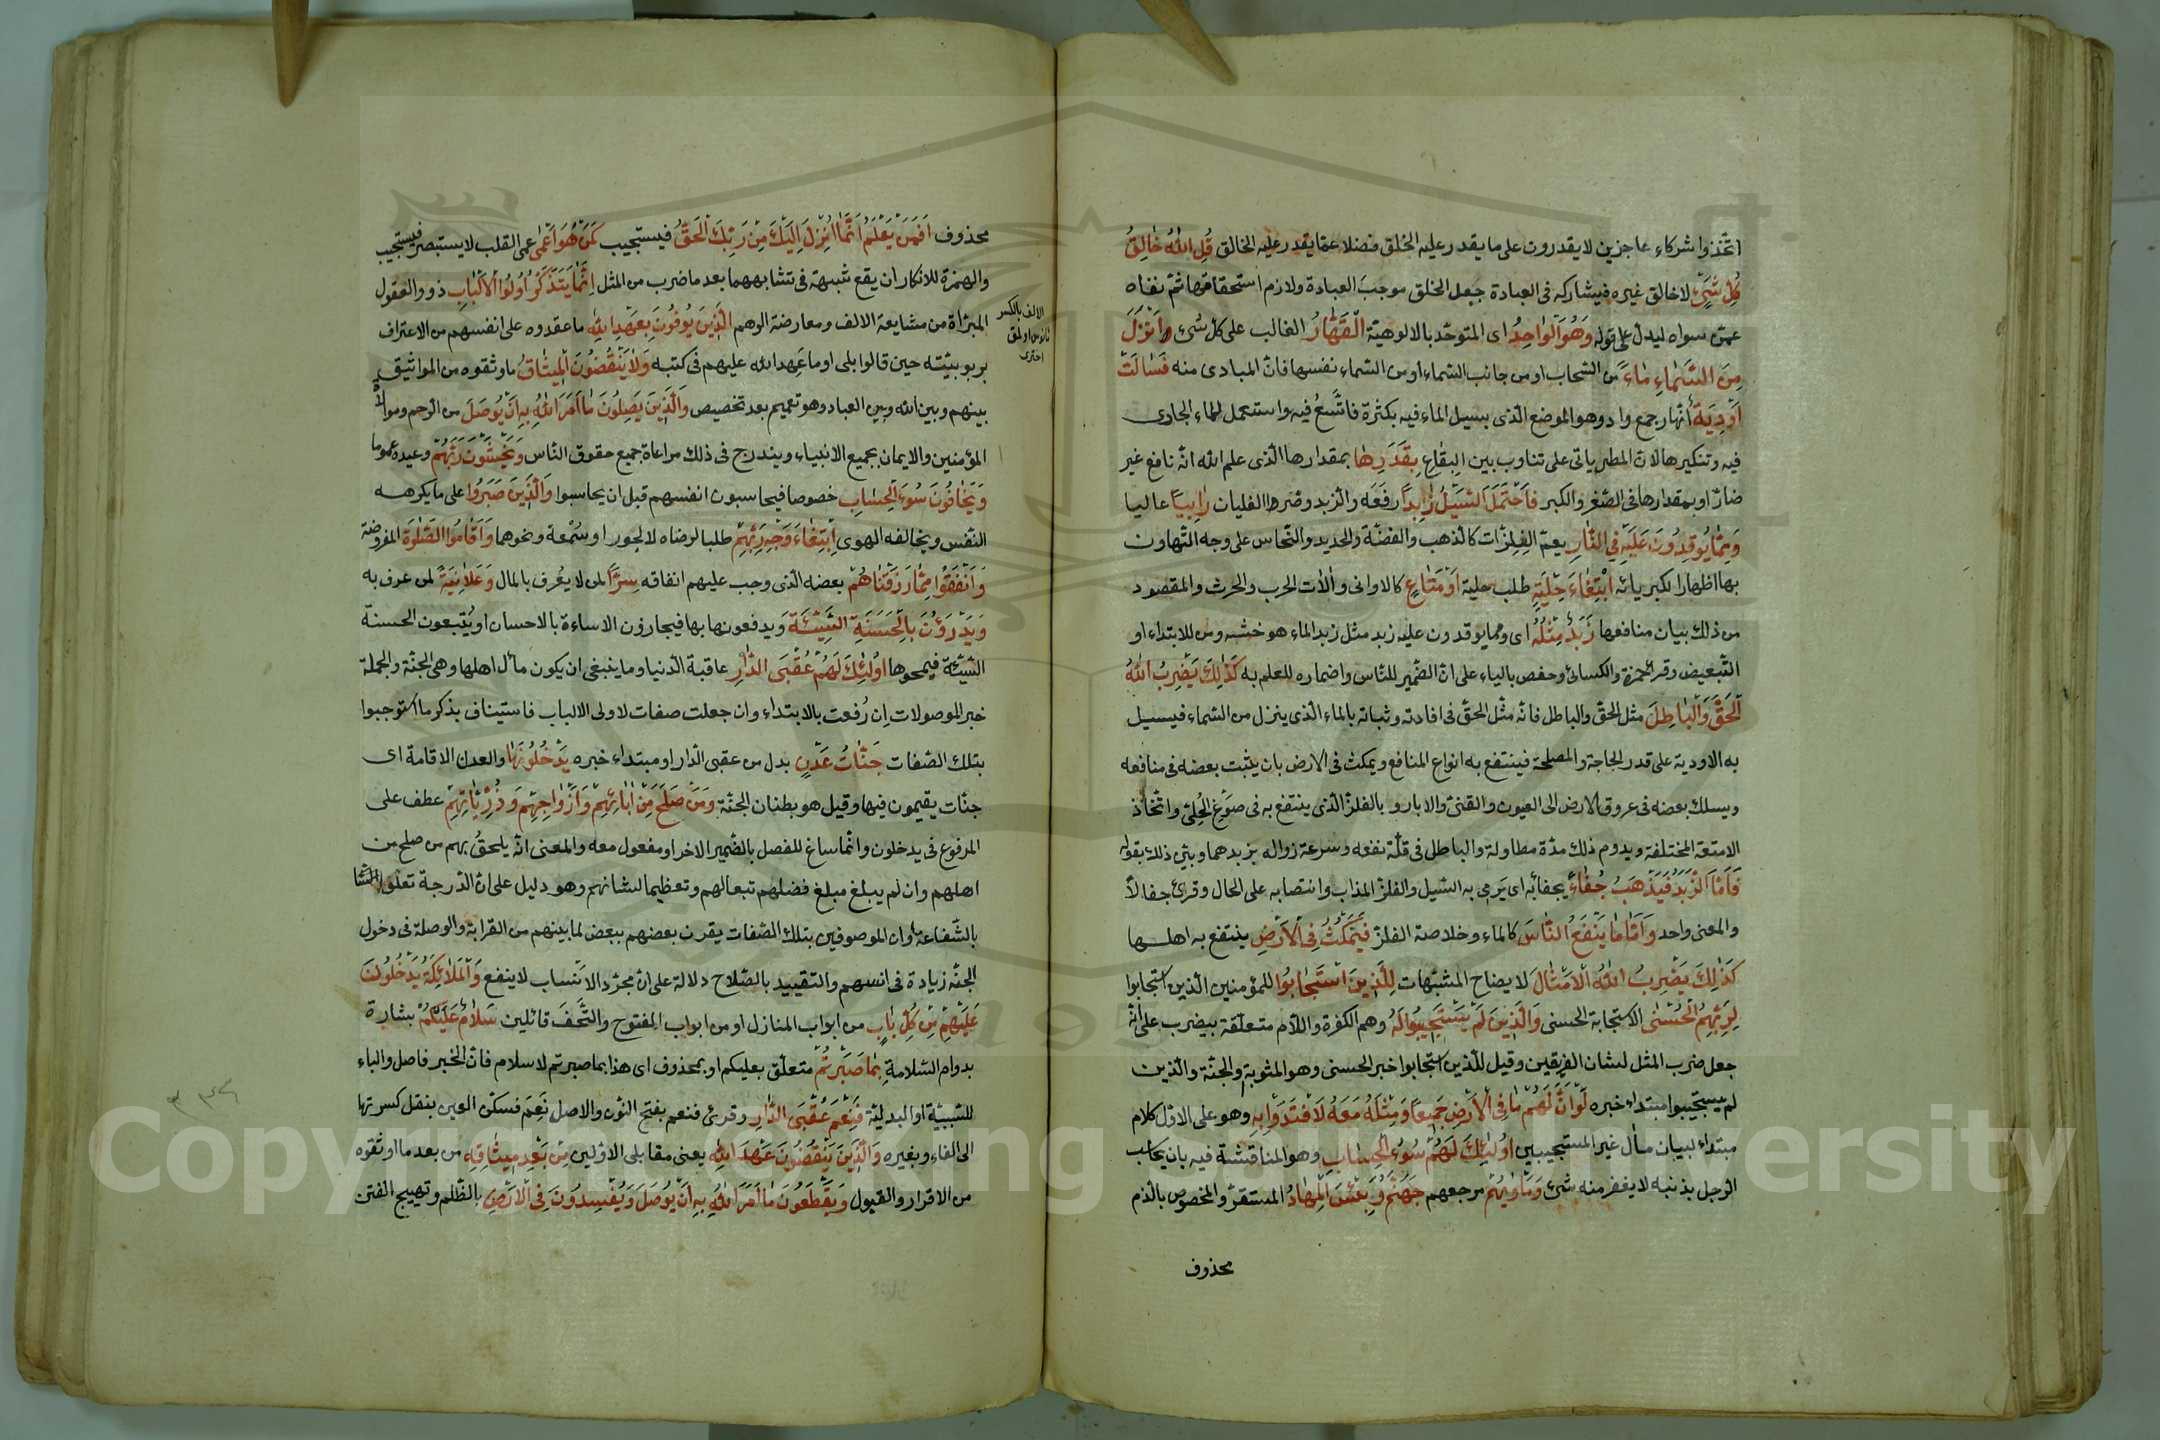 اتخذوا شركاء عاجزين لا يقدرون على ما يقدر عليه الخلق فضلا عما يقدر عليه الخالق قُلِ اللهُ خَالِقُ
كُلِّ شَيْءٍ لا خالق غيره فيشاركه في العبادة جعل الخلق موجب العبادة ولازم استحقاقها ثم نفاه
عمن سواه ليدل على قوله وَهُوَ الْوَاحِدُ اى المتوحد بالالوهية الْقَهَّارُ الغالب على كل شئ أَنْزَلَ
مِنَ السَّمَاءِ مَاءً من السحاب او من جانب السماء او من السماء نفسها فان المبادى منه فَسَالَتْ
أَوْدِيَةٌ انهار جمع واد وهو الموضع الذى يسيل الماء فيه بكثرة فاتسع فيه واستعمل للماء الجارى
فيه وتنكيرها لان المطر ياتى على تناوب بين البقاع بِقَدَرِهَا بمقدارها الذى علم الله انه نافع غير
ضار او بمقدارها فى الصغر والكبر فَاحْتَمَلَ السَّيْلُ زَبَدًا رفعه والزبد وضر الغليان رَابِيًا عاليا
وَمِمَّا يُوقِدُونَ عَلَيْهِ فِي النَّارِ يعم الفلزات كالذهب والفضة والحديد والنحاس على وجه التهاون
بها اظهارا لكبريائه ابْتِغَاءَ حِلْيَةٍ طلب حلية أَوْ مَتَاعٍ كالاوانى والات الحرب والحرث والمقصود
من ذلك بيان منافعها زَبَدٌ مِثْلُهُ اى ومما يوقدون عليه زبد مثل زبد الماء هو خبثه ومن للابتداء او
التبعيض وقرا حمزة والكسائى وحفص بالياء على ان الضمير للناس واضماره للعلم به كَذٰلِكَ يَضْرِبُ اللهُ
الْحَقَّ وَالْبَاطِلَ مثل الحق والباطل فانه مثل الحق فى افادته وثباته بالماء الذى ينزل من السماء فيسيل
به الاودية على قدر الحاجة والمصلحة فينتفع به انواع المنافع ويمكث فى الارض بان يثبت بعضه فى منافعه
ويسلك بعضه فى عروق الارض الى العيون والقنى والابار وبالفلز الذى ينتفع به فى صوغ الحلى واتخاذ
الامتعة المختلفة ويدوم ذلك مدة مطاولة والباطل فى قلة نفعه وسرعة زواله بزبدهما وبين ذلك بقوله
فَأَمَّا الزَّبَدُ فَيَذْهَبُ جُفَاءً يجفا به اى يرمى به السيل والفلز المذاب وانتصابه على الحال وقرئ جفالا
والمعنى واحد وَأَمَّا مَا يَنْفَعُ النَّاسَ كالماء وخلاصة الفلز فَيَمْكُثُ فِي الْأَرْضِ ينتفع به اهلها
كَذٰلِكَ يَضْرِبُ اللهُ الْأَمْثَالَ لايضاح المشتبهات لِلَّذِينَ اسْتَجَابُوا للمؤمنين الذين استجابوا
لِرَبِّهِمُ الْحُسْنَى الاستجابة الحسنى وَالَّذِينَ لَمْ يَسْتَجِيبُوا لَهُ وهم الكفرة واللام متعلقة بيضرب على انه
جعل ضرب المثل لشان الفريقين وقيل للذين استجابوا خبر الحسنى وهو المثوبة والجنة والذين
لم يستجيبوا مبتداء خبره لَوْ أَنَّ لَهُمْ مَا فِي الْأَرْضِ جَمِيعًا وَمِثْلَهُ مَعَهُ لَافْتَدَوْا بِهِ وهو على الاول كلام
مبتداء لبيان مال غير المستجيبين أُولٰئِكَ لَهُمْ سُوءُ الْحِسَابِ وهو المناقشة فيه بان يحاسب
الرجل بذنبه لا يغفر منه شئ وَمَأْوٰيهُمْ مرجعهم جَهَنَّمُ وَبِئْسَ الْمِهَادُ المستقر والمخصوص بالذم
محذوف
محذوف أَفَمَنْ يَعْلَمُ أَنَّمَا أُنْزِلَ إِلَيْكَ مِنْ رَبِّكَ الْحَقُّ فيستجيب كَمَنْ هُوَ أَعْمٰى عمى القلب لا يستبصر فيستجيب
والهمزة للانكار ان يقع شبهة فى تشابههما بعد ما ضرب من المثل إِنَّمَا يَتَذَكَّرُ أُولُوا الْأَلْبَابِ ذوو العقول
المبراة من مشايعة الالف ومعارضة الوهم الَّذِينَ يُوفُونَ بِعَهْدِ اللهِ ما عقدوه على انفسهم من الاعتراف
بربوبيته حين قالوا بلى او ما عهد الله عليهم فى كتبه وَلَا يَنْقُضُونَ الْمِيثَاقَ ما وثقوه من المواثيق
بينهم وبين الله وبين العباد وهو تعميم بعد تخصيص وَالَّذِينَ يَصِلُونَ مَا أَمَرَ اللهُ بِهِ أَنْ يُوصَلَ من الرحم وموالاة
المؤمنين والايمان بجميع الانبياء ويندرج فى ذلك مراعاة جميع حقوق الناس وَيَخْشَوْنَ رَبَّهُمْ وعيده عموما
وَيَخَافُونَ سُوءَ الْحِسَابِ خصوصا فيحاسبون انفسهم قبل ان يحاسبوا وَالَّذِينَ صَبَرُوا على ما يكرهه
النفس ويخالفه الهوى ابْتِغَاءَ وَجْهِ رَبِّهِمْ طلبا لرضاه لا لجور او سمعة ونحوهما وَأَقَامُوا الصَّلٰوةَ المفروضة
وَأَنْفَقُوا مِمَّا رَزَقْنَاهُمْ بعضه الذى وجب عليهم انفاقه سِرًّا لمن لا يعرف بالمال وَعَلَانِيَةً لمن عرف به
وَيَدْرَؤُنَ بِالْحَسَنَةِ السَّيِّئَةَ ويدفعونها بها فيجازون الاساءة بالاحسان او يتبعون الحسنة
السيئة فيمحوها أُولٰئِكَ لَهُمْ عُقْبَى الدَّارِ عاقبة الدنيا وما ينبغى ان يكون مال اهلها وهى الجنة والجملة
خبر الموصولات ان رفعت بالابتداء وان جعلت صفات لاولى الالباب فاستيناف بذكر ما استوجبوا
بتلك الصفات جَنَّاتُ عَدْنٍ بدل من عقبى الدار او مبتداء خبره يَدْخُلُونَهَا والعدن الاقامة اى
جنات يقيمون فيها وقيل هو بطنان الجنة وَمَنْ صَلَحَ مِنْ آبَائِهِمْ وَأَزْوَاجِهِمْ وَذُرِّيَّاتِهِمْ عطف على
المرفوع فى يدخلون وانما ساغ للفصل بالضمير الاخر او مفعول معه والمعنى انه يلحق بهم من صلح من
اهلهم وان لم يبلغ مبلغ فضلهم تبعا لهم وتعظيما لشانهم وهو دليل على ان الدرجة تعلوا
بالشفاعة وان الموصوفين بتلك الصفات يقرن بعضهم ببعض لما بينهم من القرابة والوصلة فى دخول
الجنة زيادة فى انسهم والتقييد بالصلاح دلالة على ان مجرد الانتساب لا ينفع وَالْمَلٰئِكَةُ يَدْخُلُونَ
عَلَيْهِمْ مِنْ كُلِّ بَابٍ من ابواب المنازل او من ابواب الفتوح والتحف قائلين سَلَامٌ عَلَيْكُمْ بشارة
بدوام السلامة بِمَا صَبَرْتُمْ متعلق بعليكم او بمحذوف اى هذا بما صبرتم لا سلام فان الخبر فاصل والباء
للسببية او البدلية فَنِعْمَ عُقْبَى الدَّارِ وقرئ فنعم بفتح النون والاصل نعم فسكن العين بنقل كسرتها
الى الفاء وبغيره وَالَّذِينَ يَنْقُضُونَ عَهْدَ اللهِ يعنى مقابلى الاولين مِنْ بَعْدِ مِيثَاقِهِ من بعد ما اوثقوه
من الاقرار والقبول وَيَقْطَعُونَ مَا أَمَرَ اللهُ بِهِ أَنْ يُوصَلَ وَيُفْسِدُونَ فِي الْأَرْضِ بالظلم وتهييج الفتن
الالف بالكسر
Copyright © King Saud University